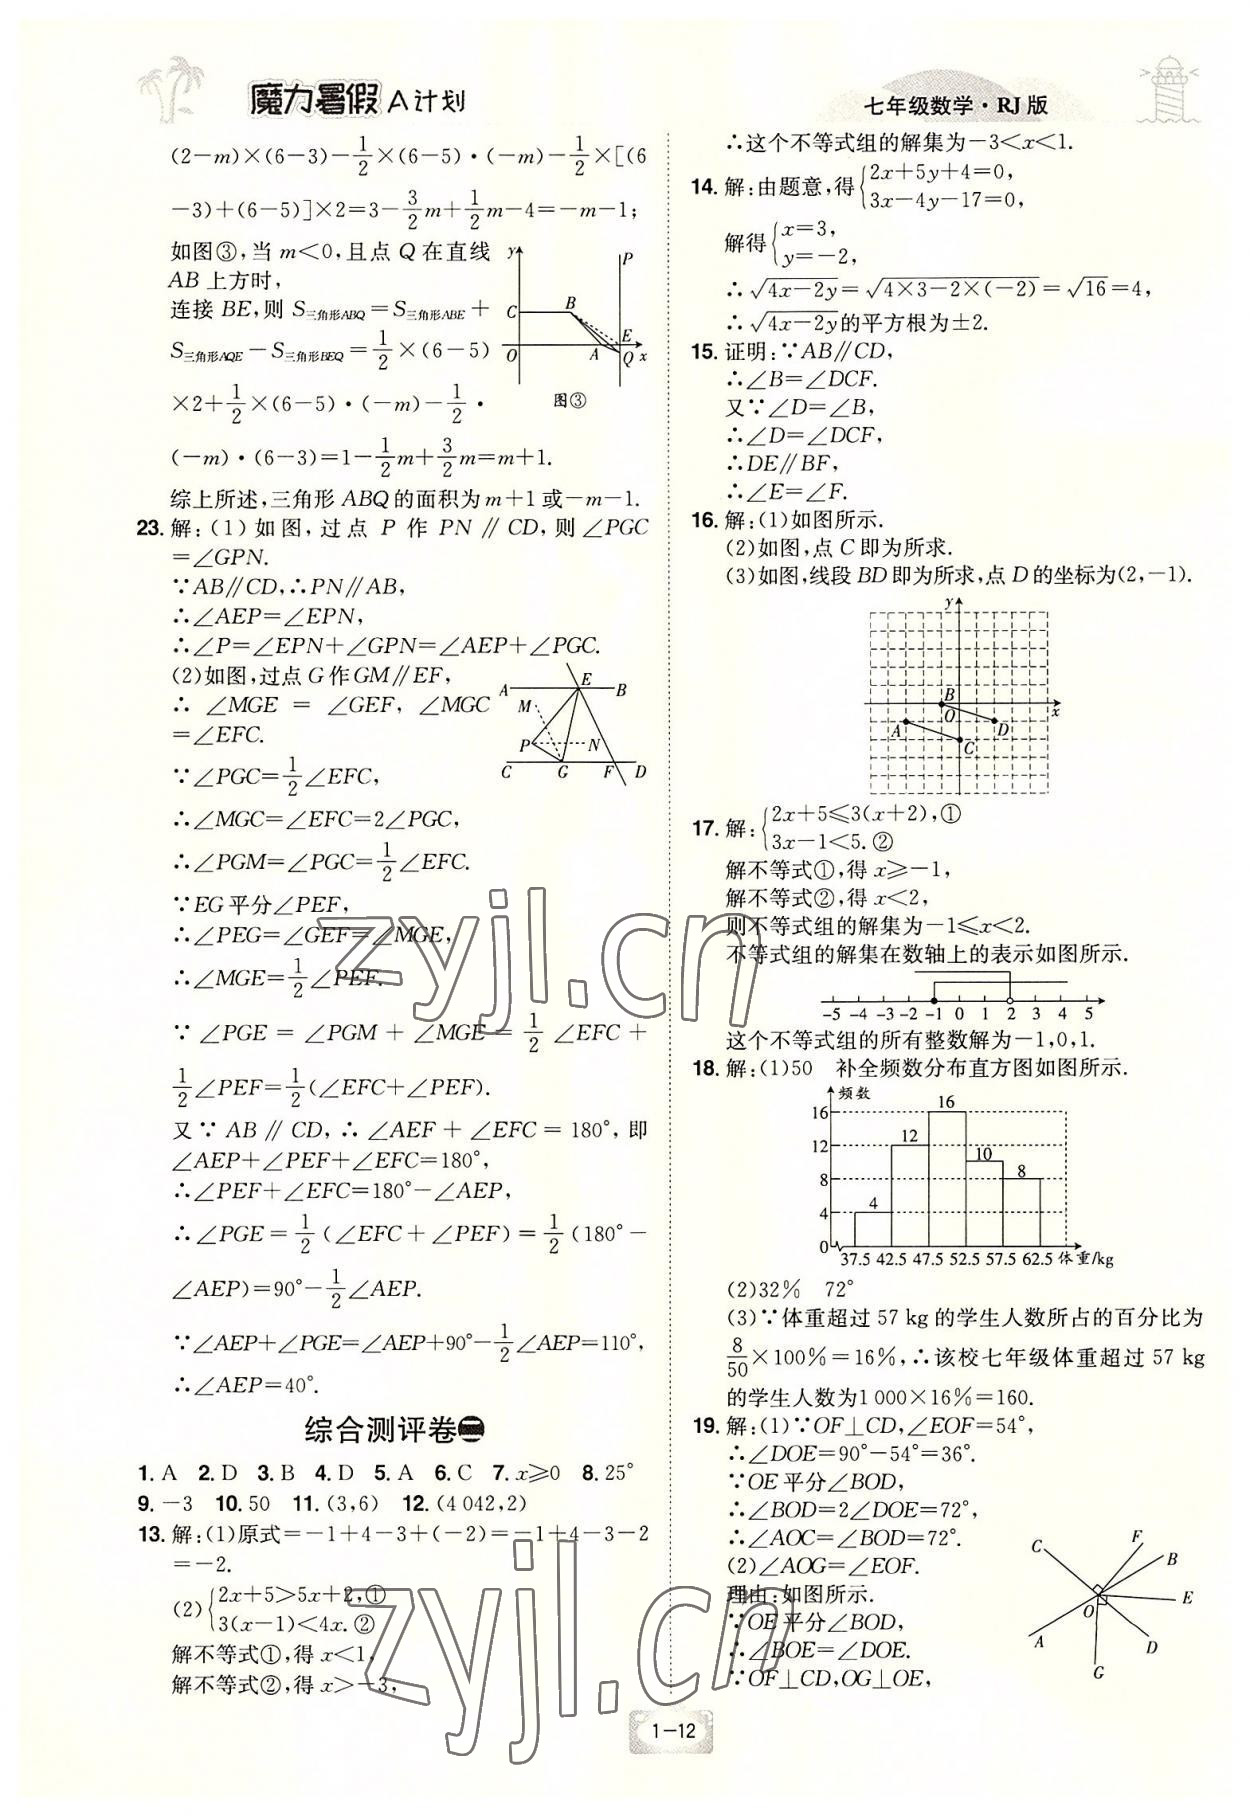 魔力暑假A计划
七年级数学·RJ版
(2-m)×(6-3)-1/2×(6-5)·(-m)-1/2×[(6
-3)+(6-5)]×2=3-3/2m+1/2m-4=-m-1;
如图③,当m<0,且点Q在直线
AB上方时,
连接BE,则S三角形ABQ=S三角形ABE+
S三角形AQE-S三角形BEQ=1/2×(6-5)
×2+1/2×(6-5)·(-m)-1/2·
(-m)·(6-3)=1-1/2m+3/2m=m+1.
y
P
C
B
E
O
A
Q
x
图③
综上所述,三角形ABQ的面积为m+1或-m-1.
23.解:(1)如图,过点P作PN∥CD,则∠PGC
=∠GPN.
∵AB∥CD,∴PN∥AB,
∴∠AEP=∠EPN,
∴∠P=∠EPN+∠GPN=∠AEP+∠PGC.
(2)如图,过点G作GM∥EF,
∴∠MGE=∠GEF,∠MGC
=∠EFC.
∵∠PGC=1/2∠EFC,
A E B
M
P N
C G F D
∴∠MGC=∠EFC=2∠PGC,
∴∠PGM=∠PGC=1/2∠EFC.
∵EG平分∠PEF,
∴∠PEG=∠GEF=∠MGE,
∴∠MGE=1/2∠PEF.
∵∠PGE=∠PGM+∠MGE=1/2∠EFC+
1/2∠PEF=1/2(∠EFC+∠PEF).
又∵AB∥CD,∴∠AEF+∠EFC=180°,即
∠AEP+∠PEF+∠EFC=180°,
∴∠PEF+∠EFC=180°-∠AEP,
∴∠PGE=1/2(∠EFC+∠PEF)=1/2(180°-
∠AEP)=90°-1/2∠AEP.
∵∠AEP+∠PGE=∠AEP+90°-1/2∠AEP=110°,
∴∠AEP=40°.
综合测评卷二
1.A 2.D 3.B 4.D 5.A 6.C 7.x≥0 8.25°
9.-3 10.50 11.(3,6) 12.(4 042,2)
13.解:(1)原式=-1+4-3+(-2)=-1+4-3-2
=-2.
(2){2x+5>5x+2,①
3(x-1)<4x.②
解不等式①,得x<1,
解不等式②,得x>-3,
∴这个不等式组的解集为-3<x<1.
14.解:由题意,得{2x+5y+4=0,
3x-4y-17=0,
解得{x=3,
y=-2,
∴√4x-2y=√4×3-2×(-2)=√16=4,
∴√4x-2y的平方根为±2.
15.证明:∵AB∥CD,
∴∠B=∠DCF.
又∵∠D=∠B,
∴∠D=∠DCF,
∴DE∥BF,
∴∠E=∠F.
16.解:(1)如图所示.
(2)如图,点C即为所求.
(3)如图,线段BD即为所求,点D的坐标为(2,-1).
y
B
O
x
A
D
C
17.解:{2x+5≤3(x+2),①
3x-1<5.②
解不等式①,得x≥-1,
解不等式②,得x<2,
则不等式组的解集为-1≤x<2.
不等式组的解集在数轴上的表示如图所示.
-5 -4 -3 -2 -1 0 1 2 3 4 5
这个不等式组的所有整数解为-1,0,1.
18.解:(1)50 补全频数分布直方图如图所示.
频数
16
16
12
12
10
8
8
4
4
0
37.5 42.5 47.5 52.5 57.5 62.5 体重/kg
(2)32% 72°
(3)∵体重超过57 kg的学生人数所占的百分比为
8/50×100%=16%,∴该校七年级体重超过57 kg
的学生人数为1 000×16%=160.
19.解:(1)∵OF⊥CD,∠EOF=54°,
∴∠DOE=90°-54°=36°.
∵OE平分∠BOD,
∴∠BOD=2∠DOE=72°,
∴∠AOC=∠BOD=72°.
(2)∠AOG=∠EOF.
理由:如图所示.
∵OE平分∠BOD,
∴∠BOE=∠DOE.
∵OF⊥CD,OG⊥OE,
C F
B
E
O
A
D
G
zyjl.cn
zyjl.cn
1-12